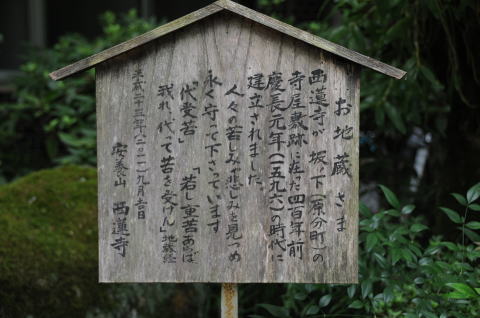 お地蔵さま
西蓮寺が、坂ノ下(原分町)の
寺屋敷跡に在った四百年前
慶長元年(一五九六)の時代に
建立されました。
人々の苦しみや悲しみを見つめ
永く守って下さっています
「代受苦」「若し重苦あらば
我れ代って苦を受けん」地蔵経
平成二十三年(二〇一一)九月吉日
安養山 西蓮寺